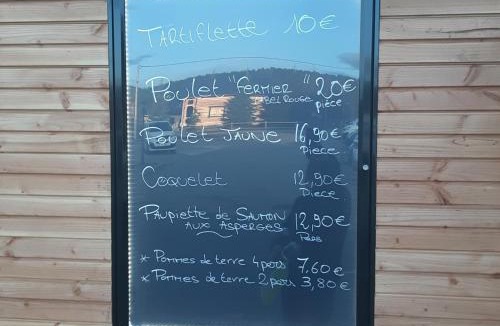 TARTiFLETTE 10€
POULET "FERMIER" 20€
LABEL ROUGE pièce
POULET JAUNE 16,90€
Pièce
COQUELET 12,90€
Pièce
PAUPIETTE de SAUMON 12,90€
AUX ASPERGES
* POMMES de terre 4 pers 7.60€
* POMMES de terre 2 pers 3,80€